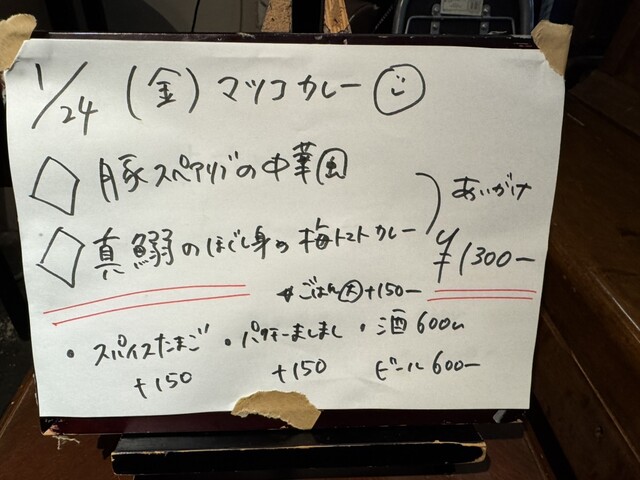 1/24 (金) マツコカレー
豚スペアリブの中華風
真鰯のほぐし身の梅トマトカレー
あいがけ
¥1300-
ごはん大+150-
・スパイスたまご +150
・パクチーましまし +150
・酒 600-
ビール 600-